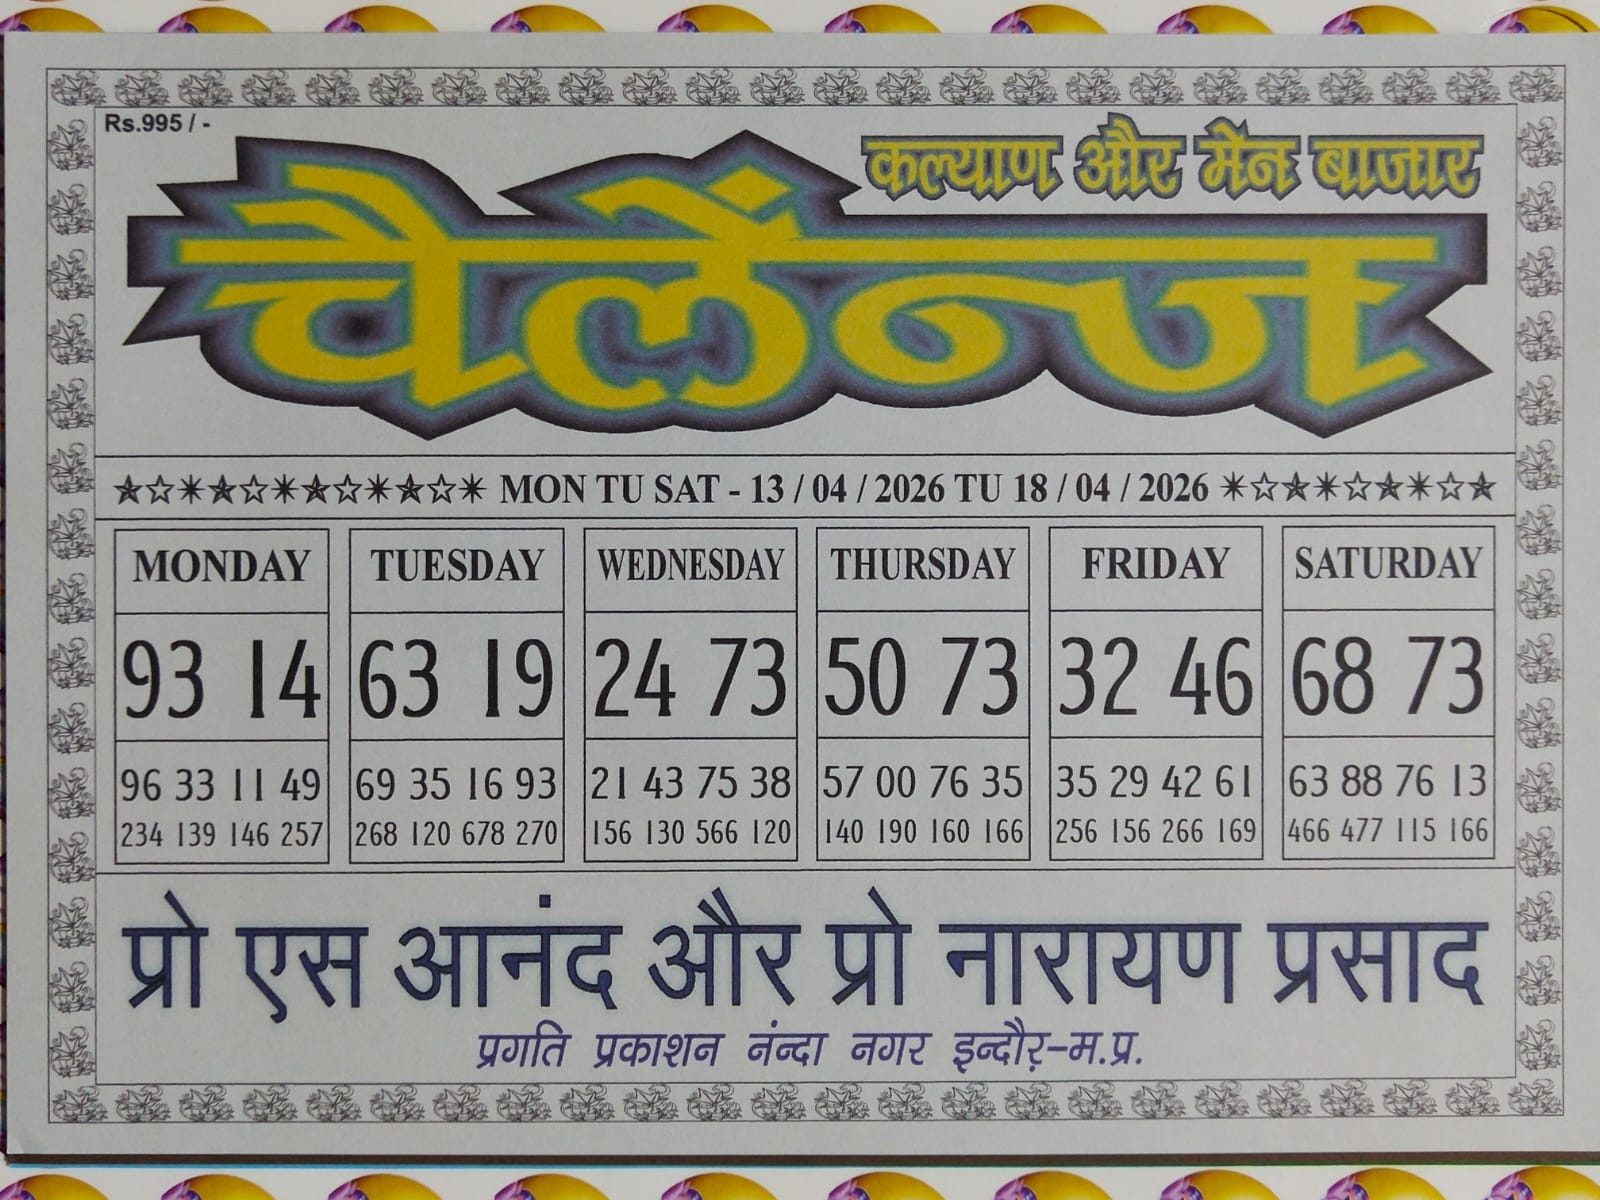 Rs.995 / -
कल्याण और मेन बाजार
चैलेंन्ज
MON TU SAT - 13 / 04 / 2026 TU 18 / 04 / 2026
MONDAY TUESDAY WEDNESDAY THURSDAY FRIDAY SATURDAY
93 14 63 19 24 73 50 73 32 46 68 73
96 33 11 49 69 35 16 93 21 43 75 38 57 00 76 35 35 29 42 61 63 88 76 13
234 139 146 257 268 120 678 270 156 130 566 120 140 190 160 166 256 156 266 169 466 477 115 166
प्रो एस आनंद और प्रो नारायण प्रसाद
प्रगति प्रकाशन नंन्दा नगर इन्दौर-म.प्र.